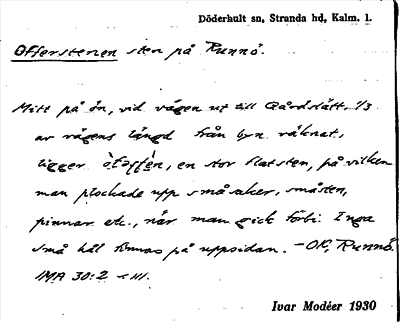 Döderhult sn, Stranda hd, Kalm. l.
Offerstenen sten på Runnö.
Mitt på ön, vid vägen ut till Gårdslätt, 1/3
av vägens längd från byn räknat,
ligger en stor flatsten, på vilken
man plockade upp småsaker, småsten,
pinnar etc., när man gick förbi. Inga
små hål finnas på uppsidan. - OK, Runnö.
IMA 30:2 < III.
Ivar Modéer 1930